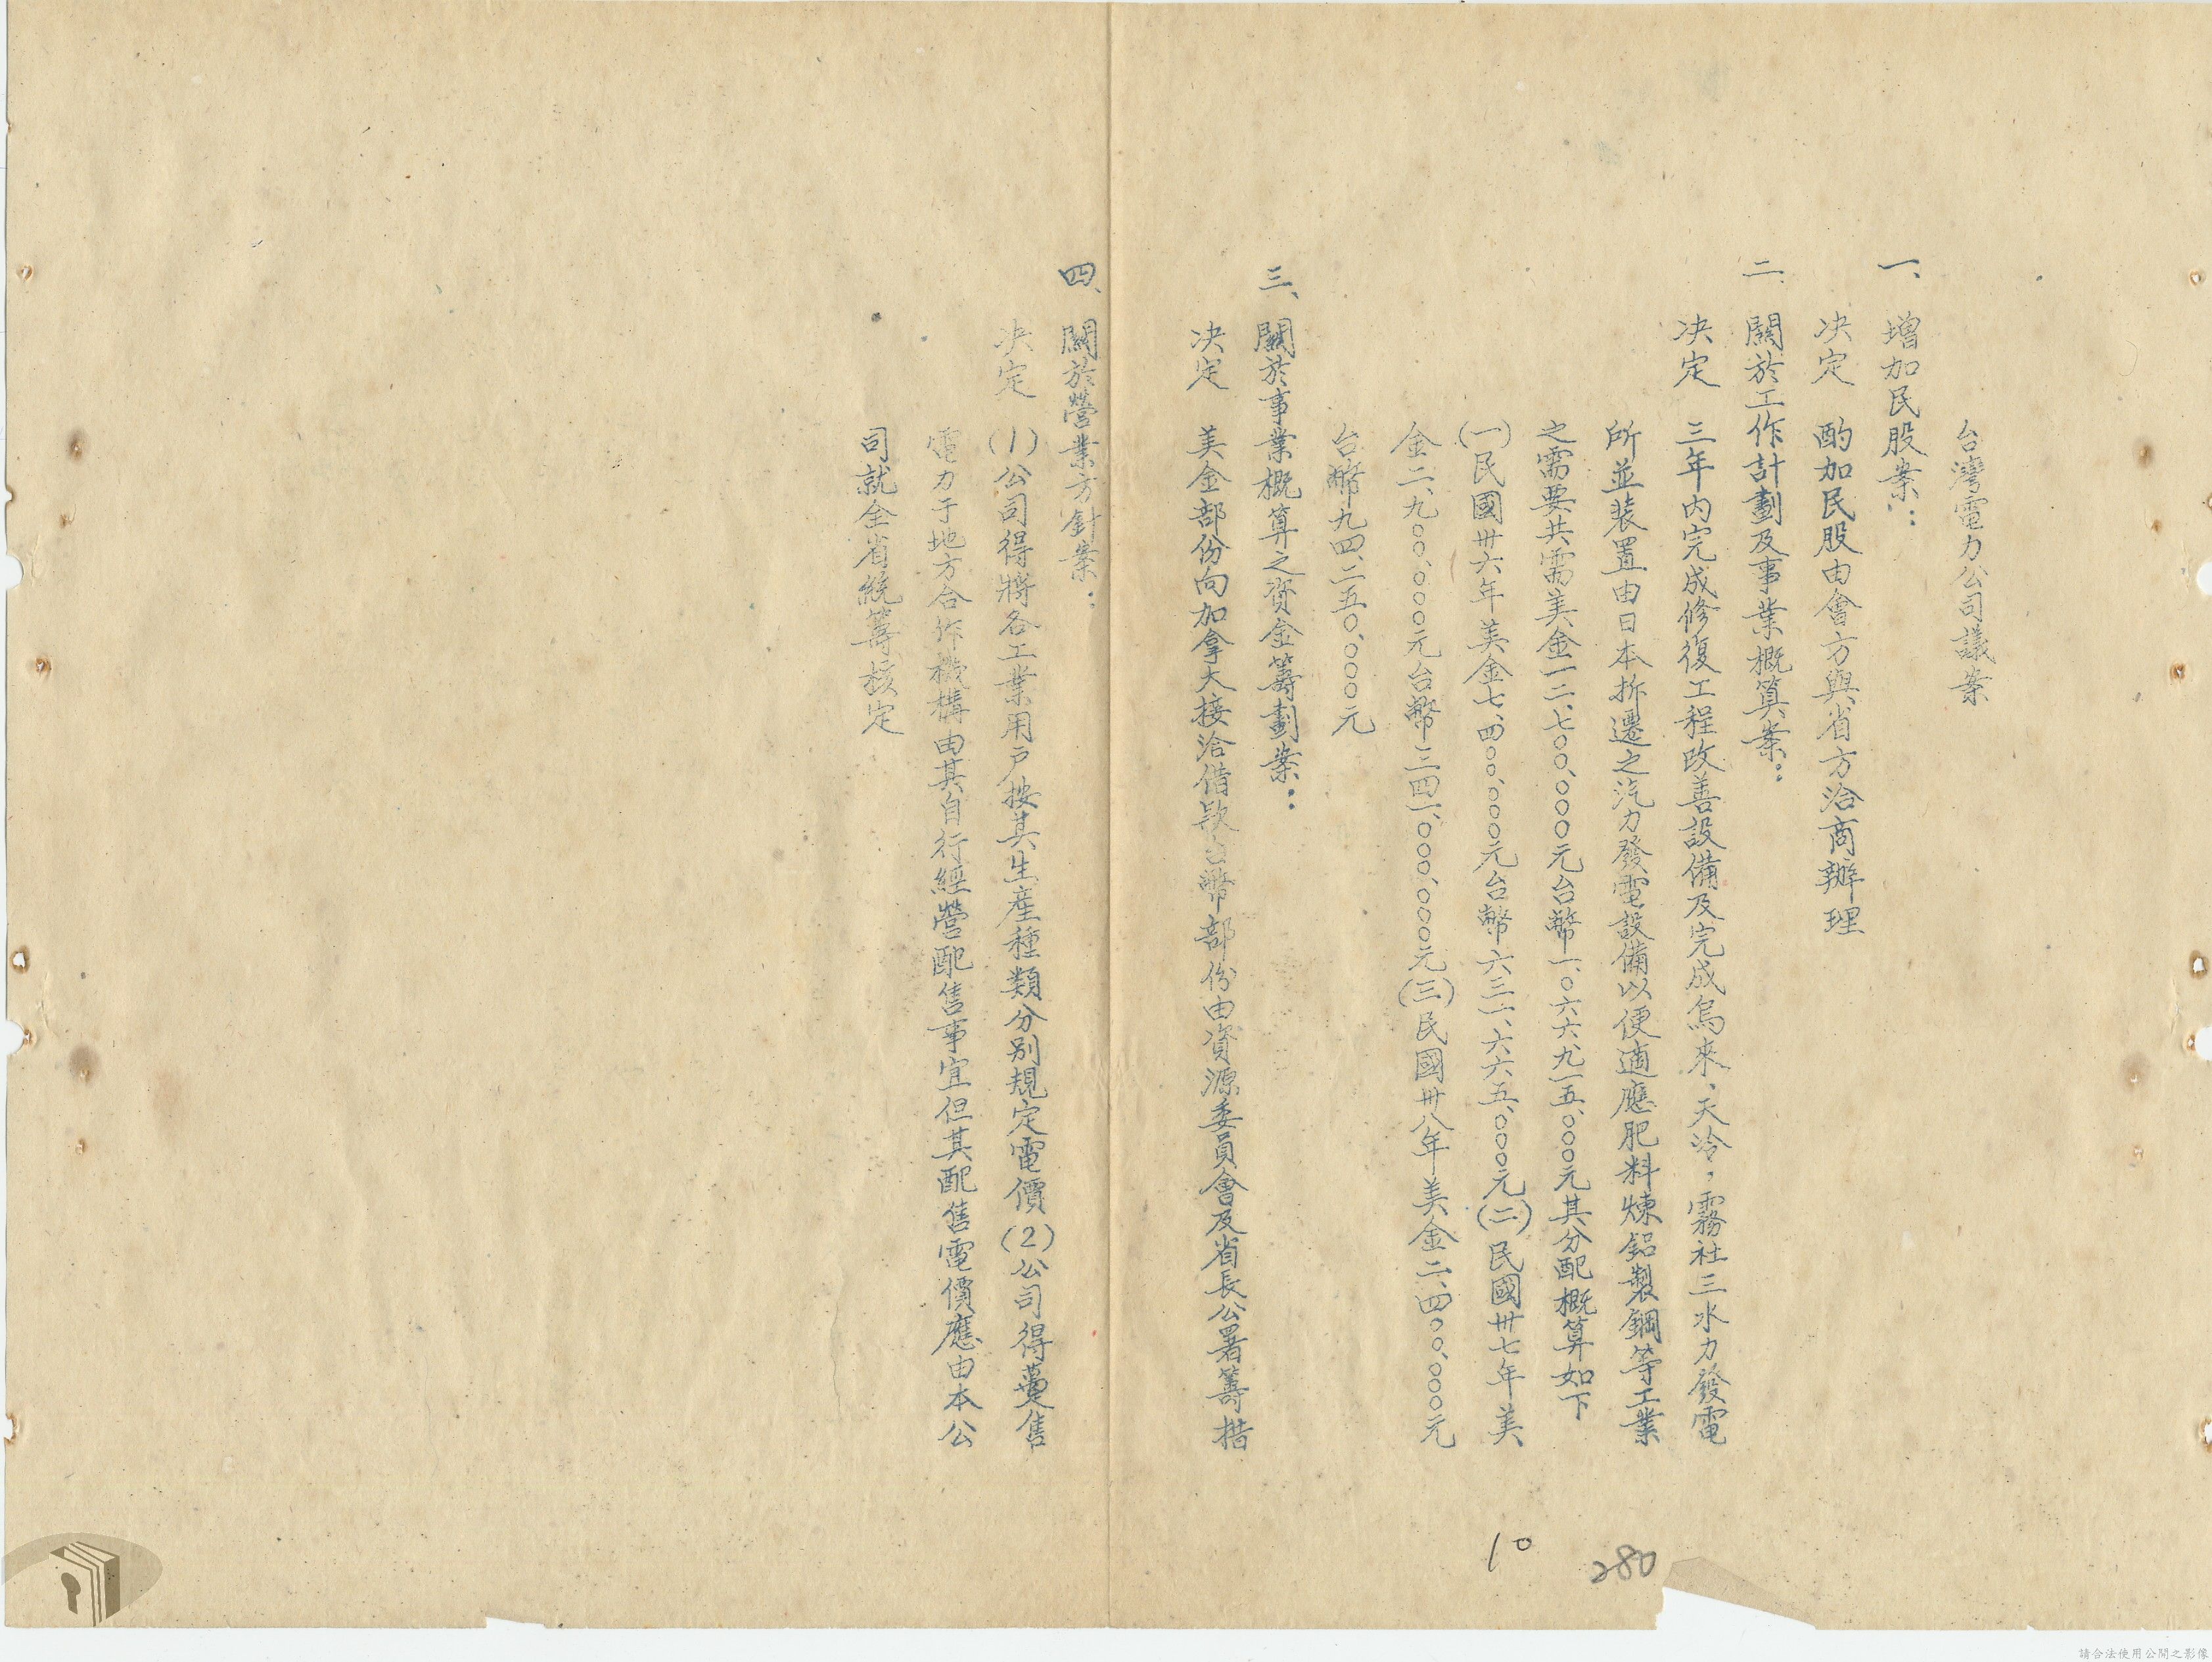 台灣電力公司議案
一、增加民股案：
決定 酌加民股由會方與省方洽商辦理
二、關於工作計劃及事業概算案：
決定 三年內完成修復工程改善設備及完成烏來、天冷，霧社三水力發電
所並裝置由日本拆遷之汽力發電設備以便適應肥料煉鋁製鋼等工業
之需要共需美金一二、七〇〇、〇〇〇元台幣一、〇六六、九一五、〇〇〇元其分配概算如下
(一)民國卅六年美金七、四〇〇、〇〇〇元台幣六三一、六六五、〇〇〇元(二)民國卅七年美
金二、九〇〇、〇〇〇元台幣三四一、〇〇〇、〇〇〇元(三)民國卅八年美金二、四〇〇、〇〇〇元
台幣九四、二五〇、〇〇〇元
三、關於事業概算之資金籌劃案：
決定 美金部份向加拿大接洽借款台幣部份由資源委員會及省長公署籌措
四、關於營業方針案：
決定 (1)公司得將各工業用戶按其生產種類分別規定電價(2)公司得躉售
電力于地方合作機構由其自行經營配售事宜但其配售電價應由本公
司就全省統籌核定
10
280
請合法使用公開之影像